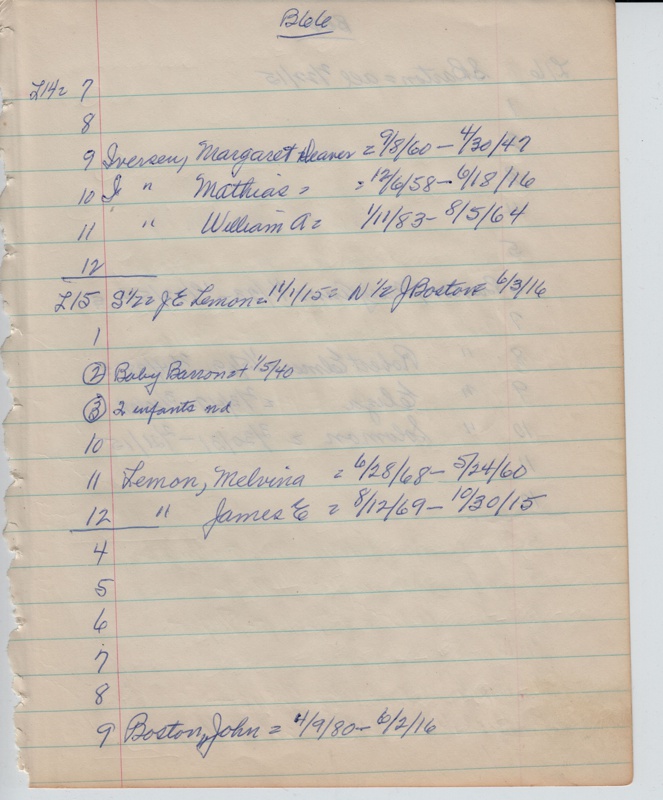 B66
L14= 7
8
9 Iversen, Margaret Deaver = 9/8/60 - 4/30/47
10 I " Mathias = = 12/6/58 - 6/18/16
11 " William A = 1/11/83 - 8/5/64
12
L15 S 1/2 = J E Lemon = 11/1/15 = N 1/2 J Boston = 6/3/16
1
② Baby Barron + 1/5/40
③ 2 infants nd
10
11 Lemon, Melvina = 6/28/68 - 5/24/60
12 " James E = 8/12/69 - 10/30/15
4
5
6
7
8
9 Boston, John = 4/9/80 - 6/2/16